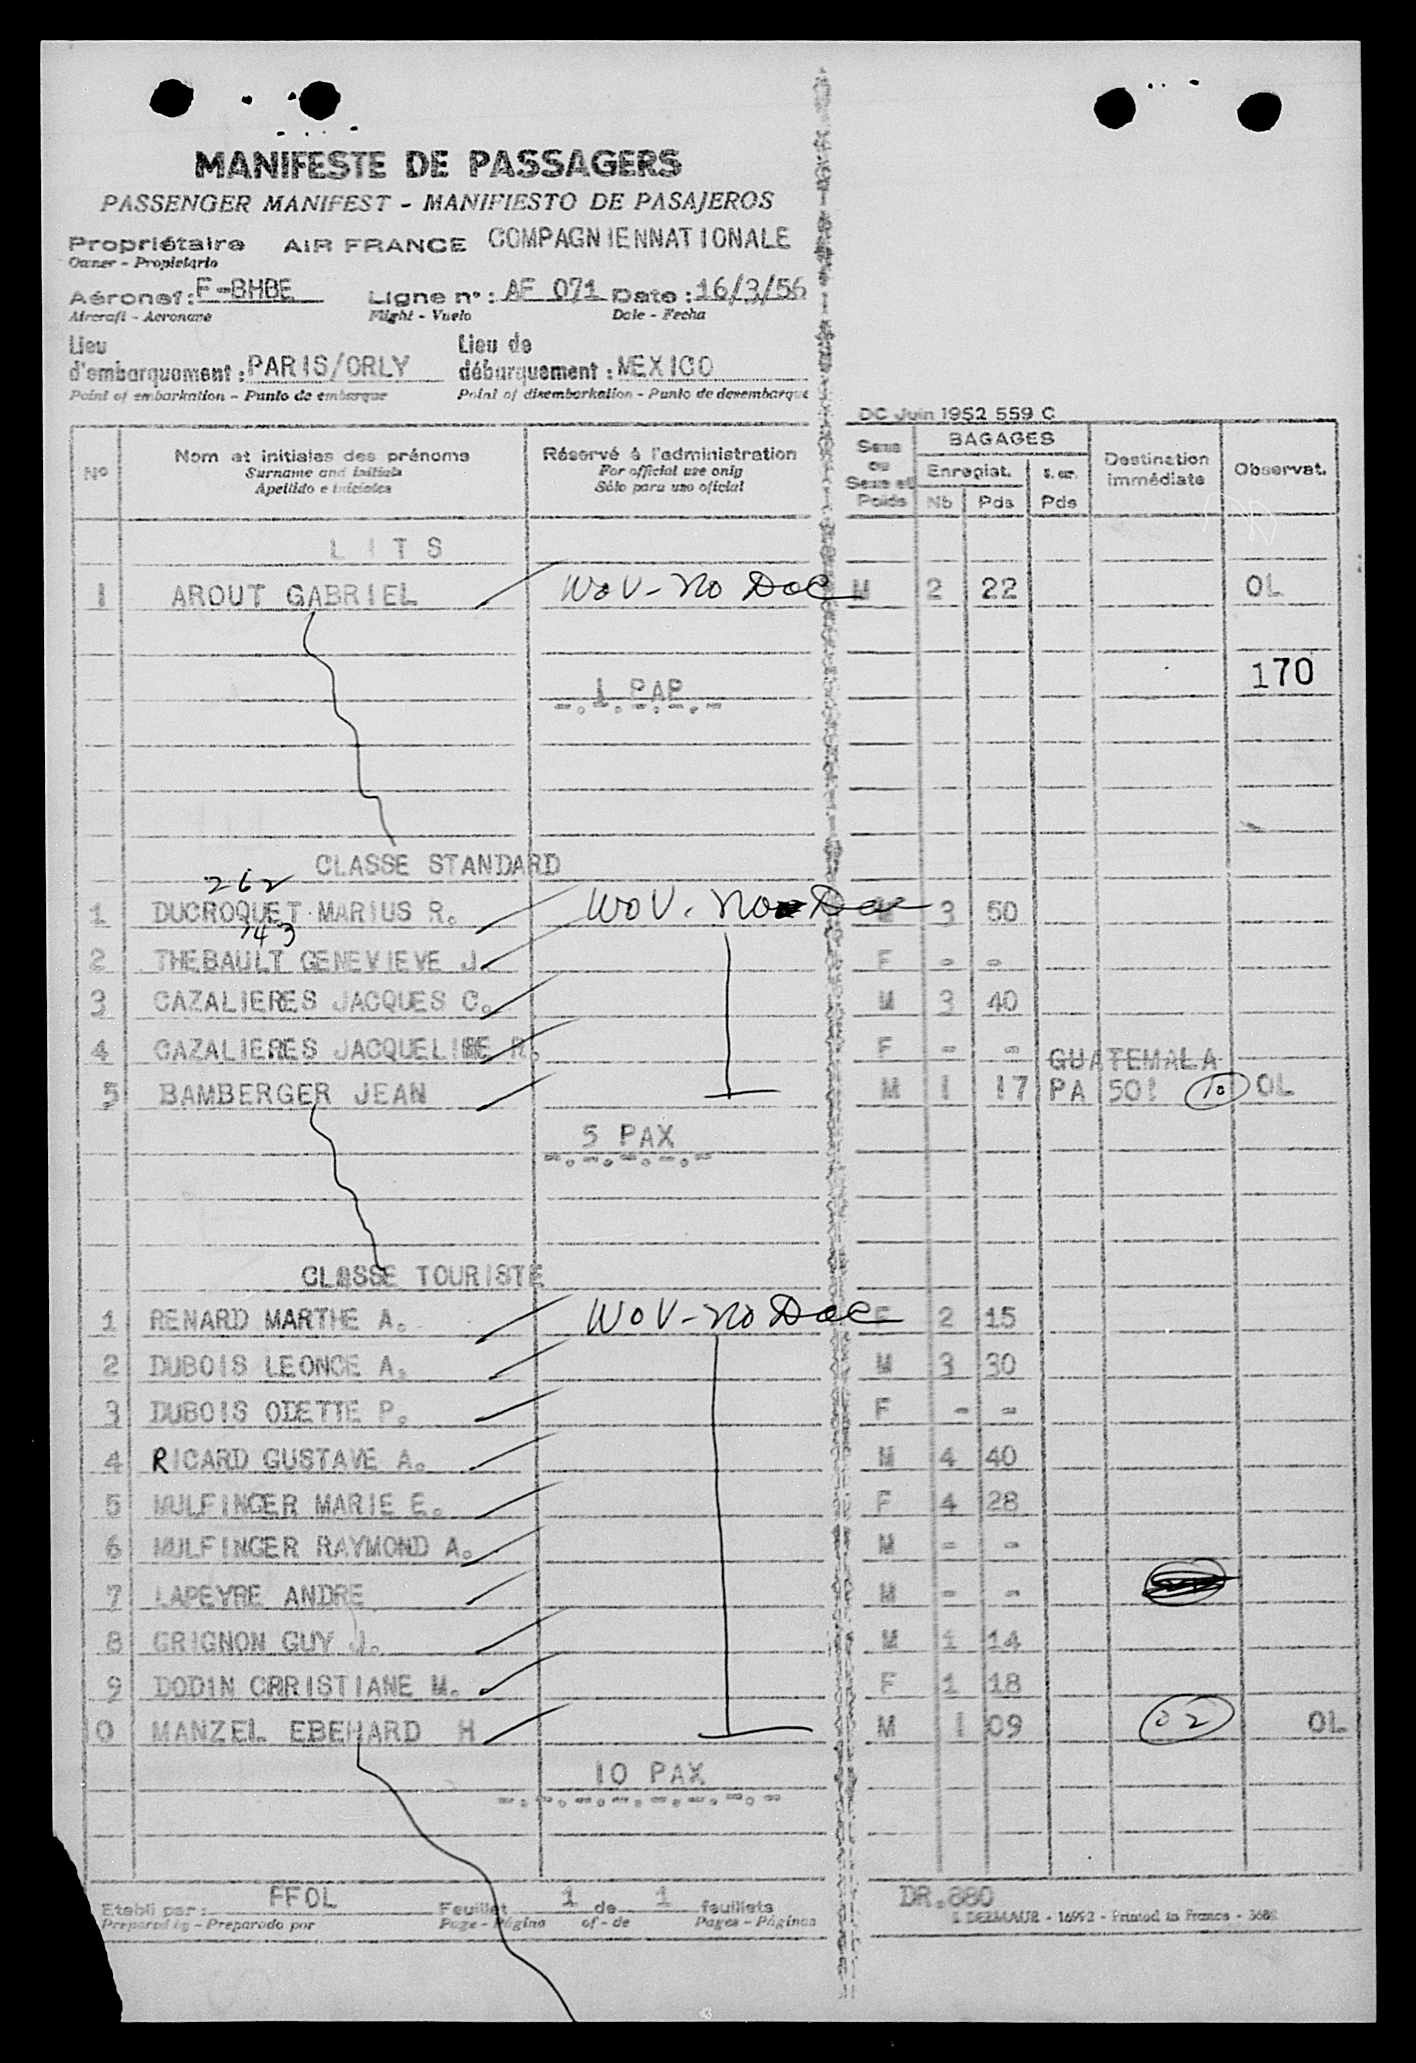 MANIFESTE DE PASSAGERS
PASSENGER MANIFEST - MANIFIESTO DE PASAJEROS
Propriétaire AIR FRANCE COMPAGNIENNATIONALE
Owner - Propietario
Aéronef: F-BHBE Ligne n°: AF 071 Date: 16/3/56
Aircraft - Aeronave Flight - Vuelo Date - Fecha
Lieu d'embarquement: PARIS/ORLY Lieu de débarquement: MEXICO
Point of embarkation - Punto de embarque Point of disembarkation - Punto de desembarque
DC Juin 1952 559 C
N° Nom et initiales des prénoms Réservé à l'administration Sexe ou Sexe et Poids BAGAGES Destination immédiate Observat.
Surname and initials For official use only Enregist.
Apellido e iniciales Sólo para uso oficial Nb Pds Pds
LITS
1 AROUT GABRIEL WOV - NO DOC M 2 22 OL
170
1 PAP
CLASSE STANDARD
262
1 DUCROQUET MARIUS R. WOV. NO DOC 3 50
143
2 THEBAULT GENEVIEVE J. F - -
3 CAZALIERES JACQUES C. M 3 40
4 CAZALIERES JACQUELINE R. F - -
GUATEMALA
5 BAMBERGER JEAN M 1 17 PA 501 10 OL
5 PAX
CLASSE TOURISTE
1 RENARD MARTHE A. WOV - NO DOC F 2 15
2 DUBOIS LEONCE A. M 3 30
3 DUBOIS ODETTE P. F - -
4 RICARD GUSTAVE A. M 4 40
5 MULFINGER MARIE E. F 4 28
6 MULFINGER RAYMOND A. M - -
7 LAPEYRE ANDRE M - -
8 GRIGNON GUY J. M 1 14
9 DODIN CRRISTIANE M. F 1 18
10 MANZEL EBEHARD H M 1 09 02 OL
10 PAX
Etabli par: FFOL Feuillet 1 de 1 feuillets DR.880
Prepared by - Preparado por Page - Página of - de Pages - Páginas - 16992 - Printed in France -